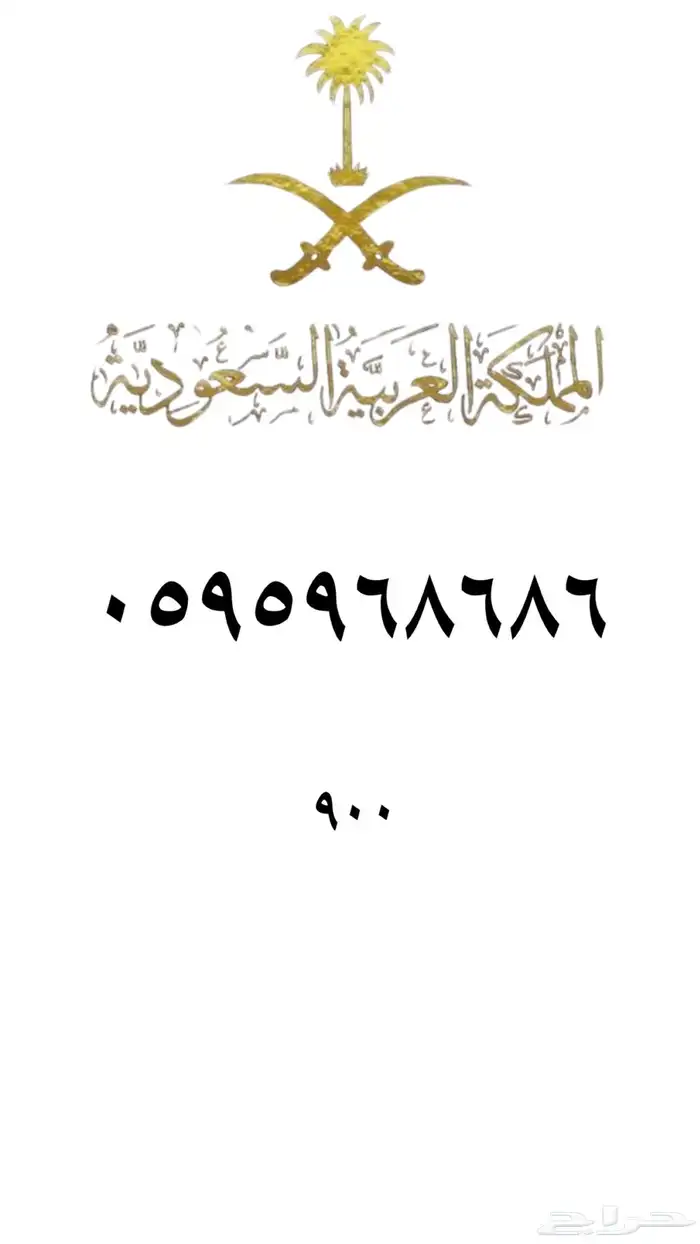 المملكة العربية السعودية
٠٥٩٥٩٦٨٦٨٦
٩٠٠
حراج